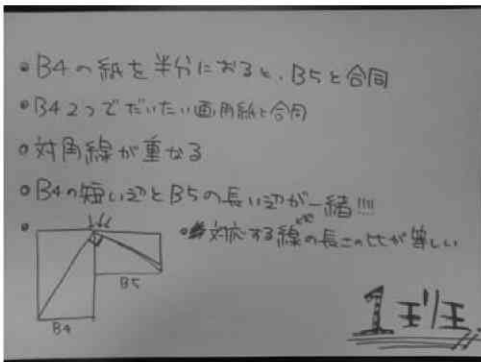 ●B4の紙を半分におると、B5と合同
●B4 2つでだいたい画用紙と合同
●対角線が重なる
●B4の短い辺とB5の長い辺が一緒!!!!
●対応する線の長さの比が等しい
B5
B4
1班